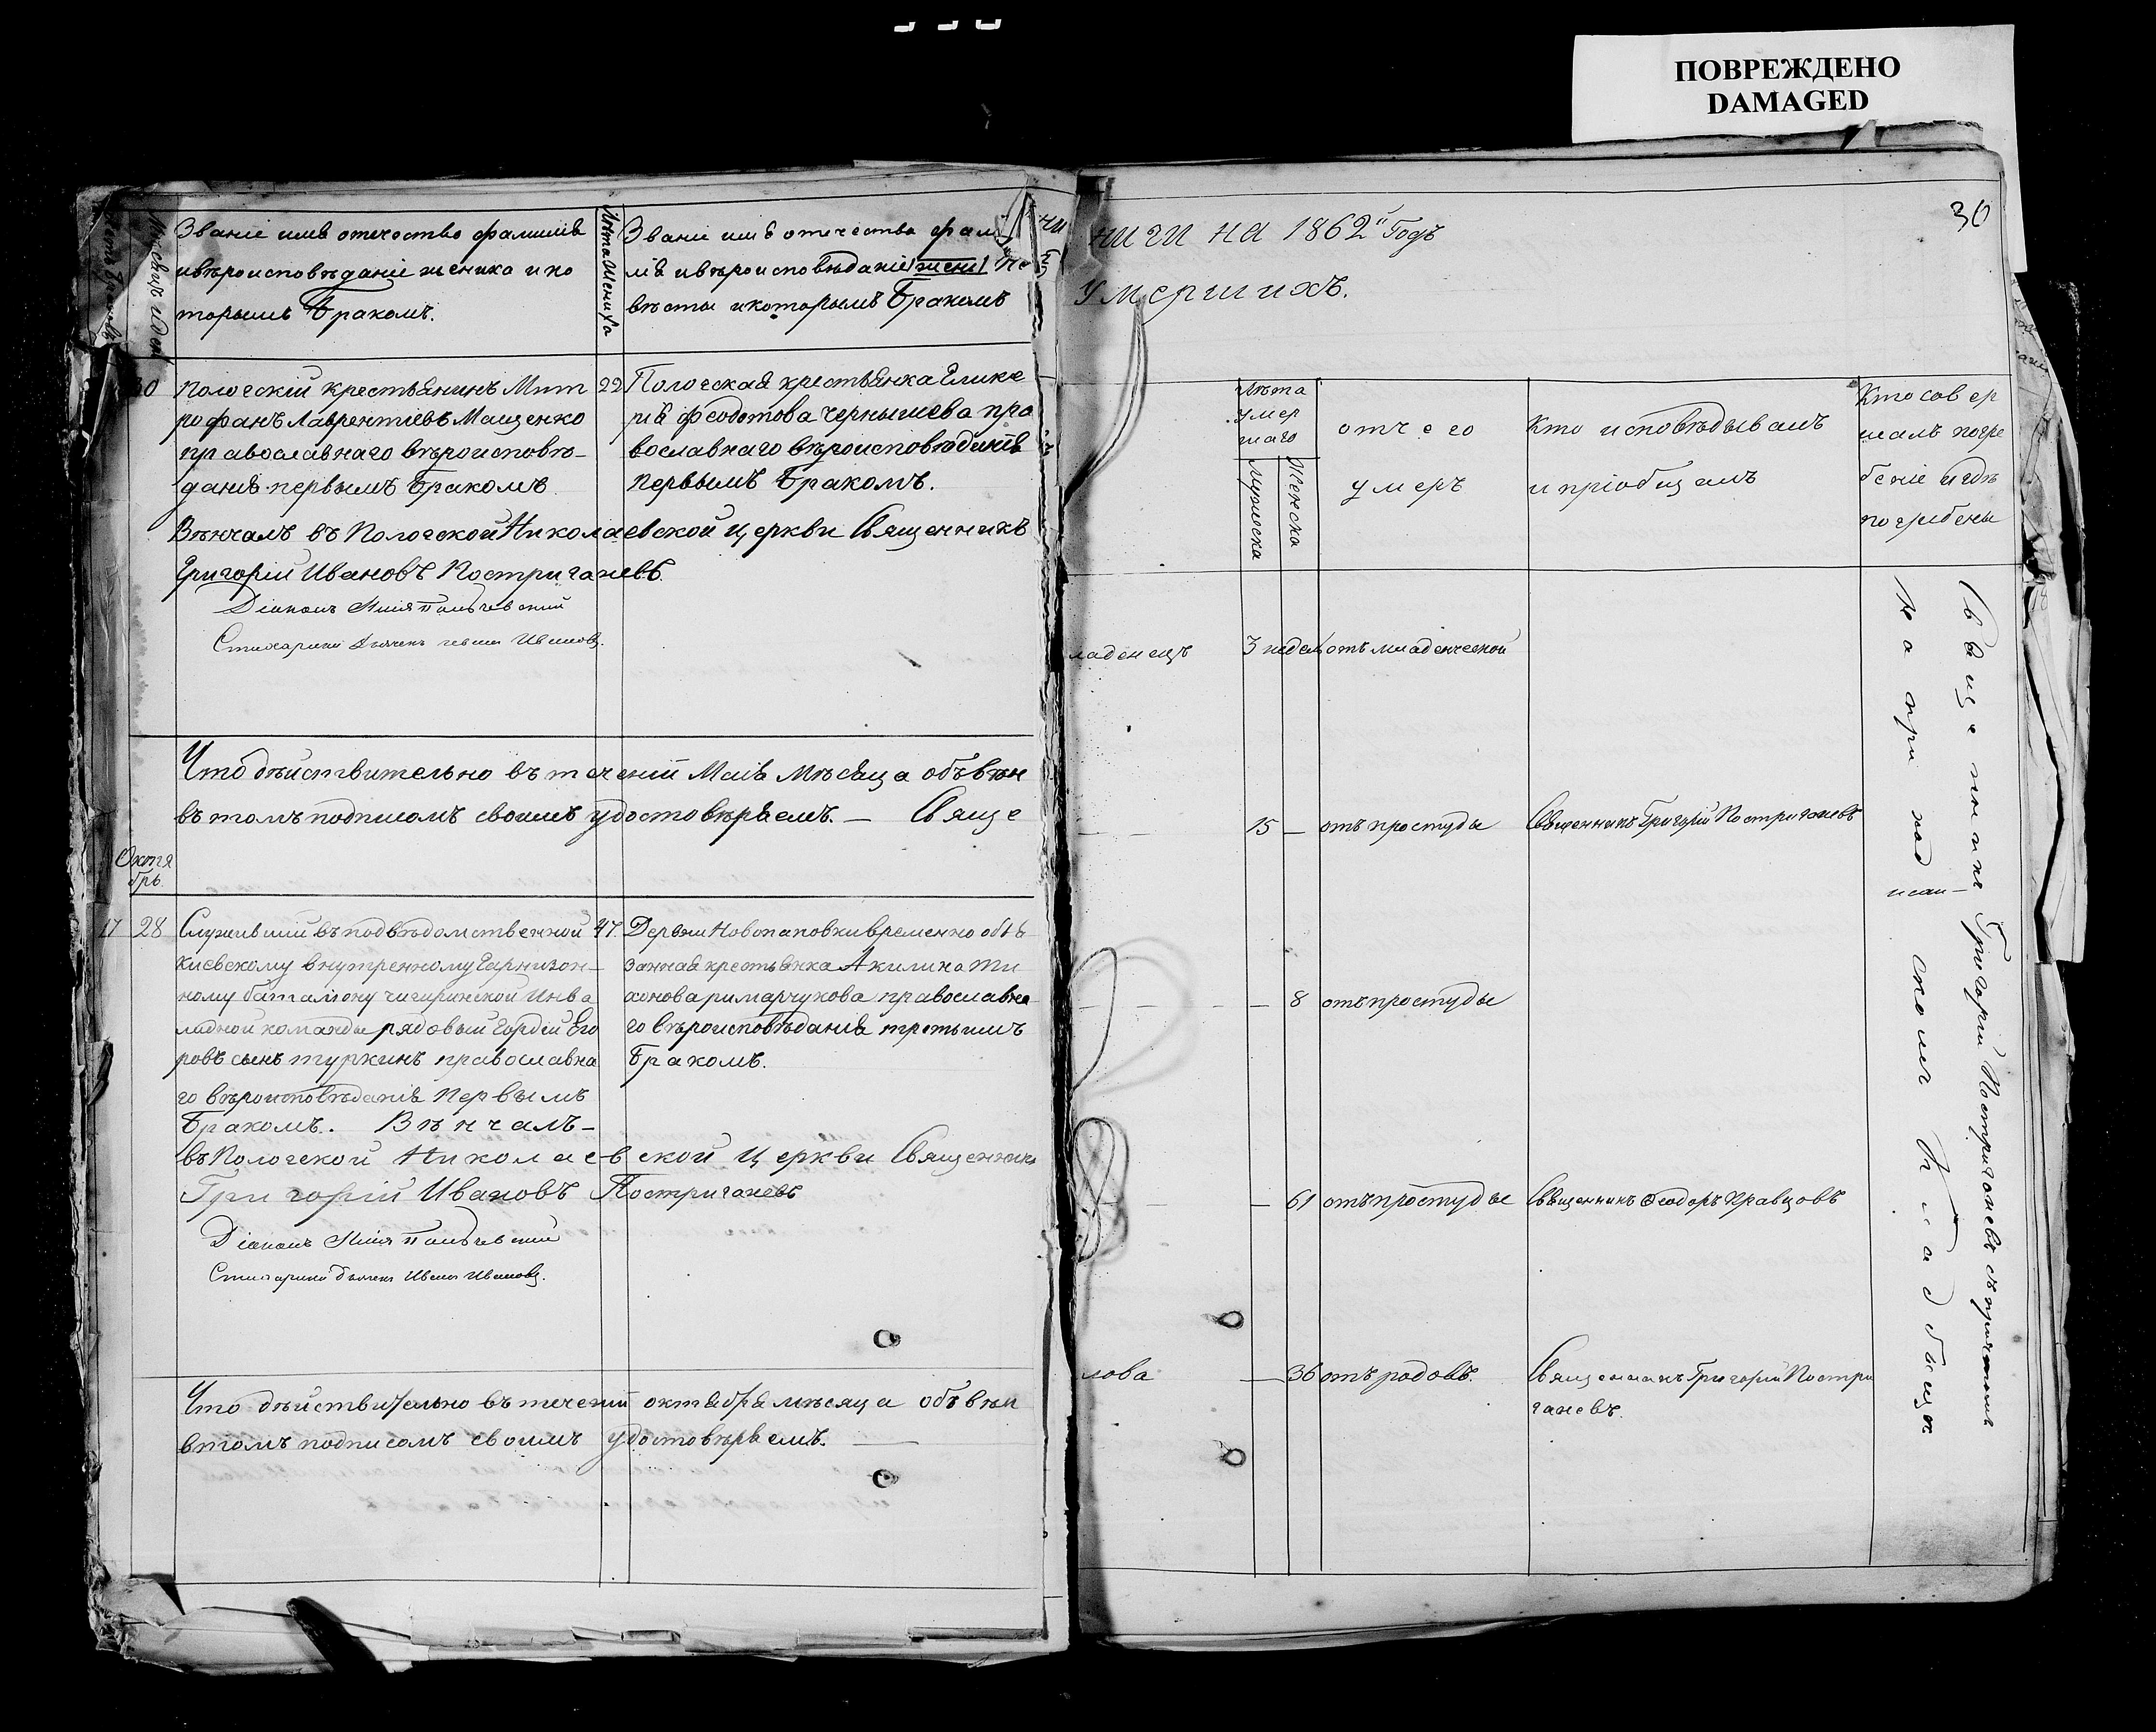 ПОВРЕЖДЕНО
DAMAGED
Званіе имя отчество фамилія
ивѣроисповѣданіе жениха и ко
торымъ Бракомъ.
Лѣта Жениха
Званіе имя отчества фами
лія ивѣроисповѣданіе жени не
вѣсты икоторымъ Бракомъ
30
Пологскій крестьянинъ Мит
рофанъ Лаврентіевъ Мащенко
православнаго вѣроисповѣ-
данія первымъ Бракомъ
22
Пологская крестьянка Глике
рія Феодотова Чернышева пра
вославнаго вѣроисповѣданія
первымъ Бракомъ.
Вѣнчалъ въ Пологской Николаевской церкви Священникъ
Григорій Ивановъ Постригачевъ
Діаконъ
Стихарный Ивановъ.
Что дѣйствительно въ теченіи Маія Мѣсяца объвѣн
въ томъ подписомъ своимъ удостовѣряемъ. — Свяще
Октя
брь
17 28
Служившій въ подвѣдомственной
Кіевскому внутренному Гарнизон-
ному баталіону чигиринской Инва
лидной команды рядовый Гордій Его
ровъ сынъ туркинъ православна
го вѣроисповѣданія первымъ
Бракомъ. Вѣнчалъ-
47.
Деревни Новопаповки временно обѣ
занная крестьянка Акилина Ти
хонова римарчукова православна
го вѣроисповѣданія третьимъ
Бракомъ.
въ Пологской Николаевской Церкви Священникъ
Григорій Ивановъ Постригачевъ
Діаконъ
Стихарный дьячекъ Иванъ Ивановъ.
Что дѣйствительно въ теченіи октября мѣсяца объвѣн
втомъ подписомъ своимъ удостовѣряемъ. —
30
ниги на 1862й Годъ
Умершихъ.
Лѣта
умер
шаго
Мужеска
Женска
отчего
умеръ
Кто исповѣдывалъ
и пріобщалъ
Кто совер
шалъ погре
беніе игдѣ
погребены
ладенецъ 3 недел отъ младенческой
15 — отъ простуды Священникъ Григорій Постригачевъ
— 8 отъ простуды
— 61 отъ простуды Священникъ Феодоръ Правцовъ
лова — 36 отъ родовъ. Священникъ Григорій Постри
гачевъ.
Священникъ Григорій Постригачевъ съ причтомъ
на при ход скомъ Кладбищѣ